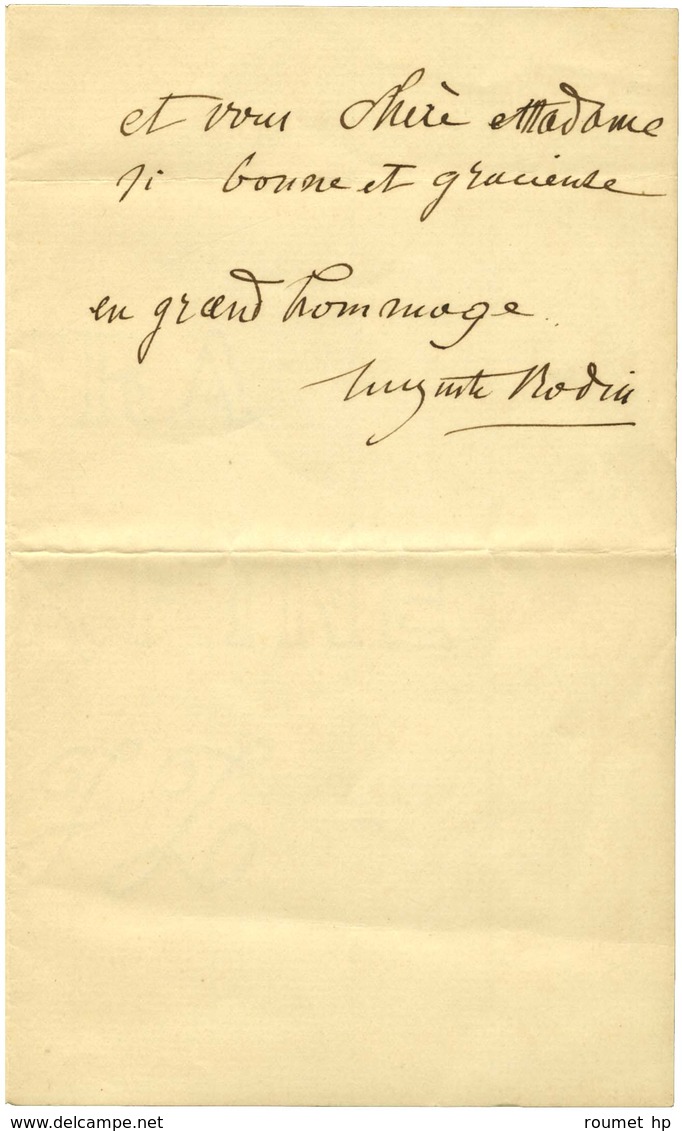 et vous Chère Madame
si bonne et gracieuse
en grand hommage.
Auguste Rodin
www.delcampe.net
roumet hp